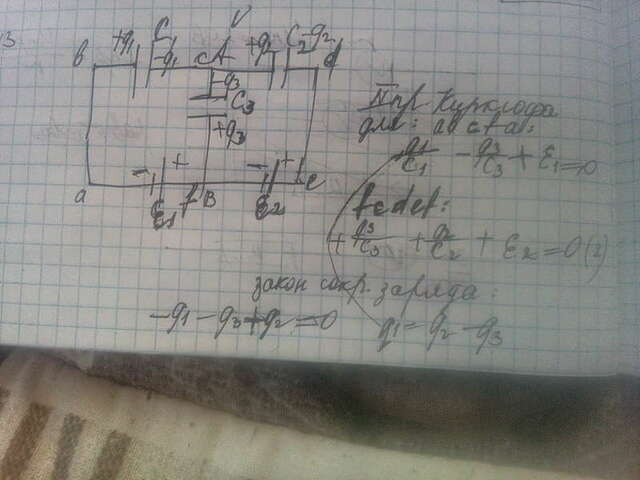 3
V
+q1 C1 -q1 A +q2 C2 -q2
b c d
-q3
C3
+q3
- + - +
a E1 f B E2 e
II пр. Кирхгофа
для: abcfa:
q1/C1 - q3/C3 + E1 = 0
fcdef:
+ q3/C3 + q2/C2 + E2 = 0 (2)
закон сохр. заряда:
-q1 - q3 + q2 = 0 q1 = q2 - q3